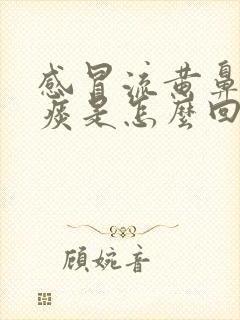 感冒流黄鼻
痰是怎麼回
顾婉音